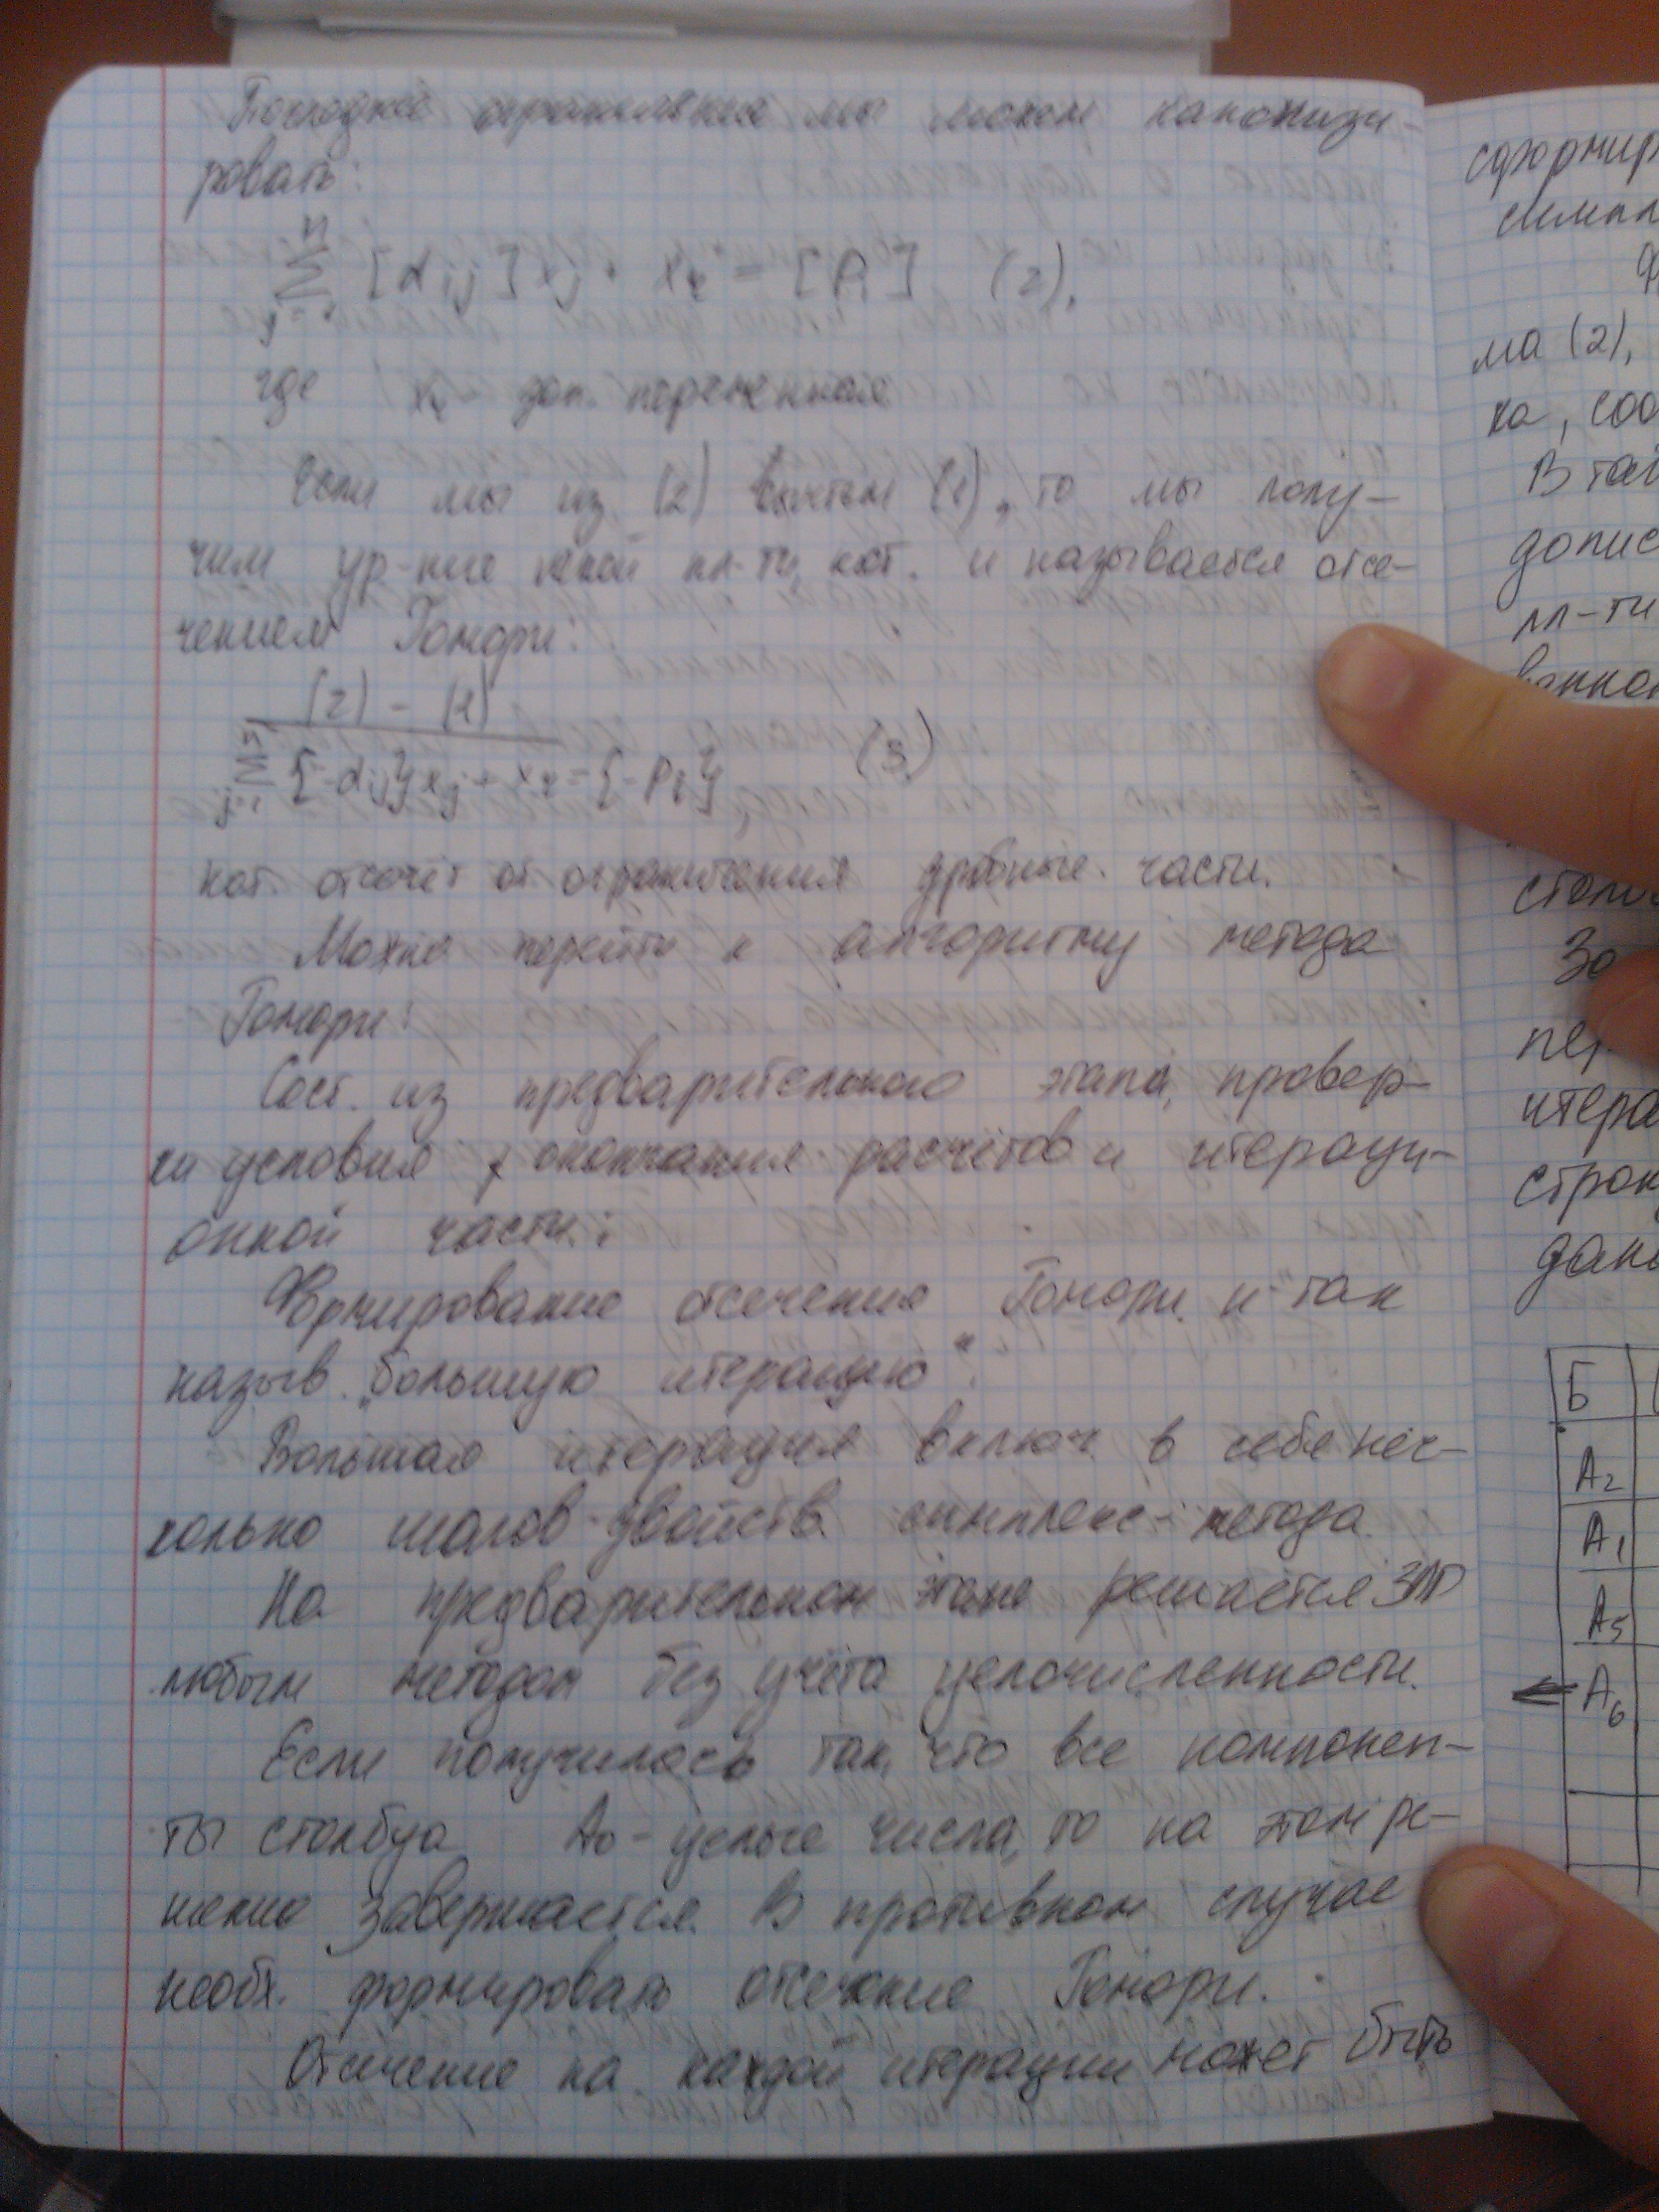 Последнее ограничение мы можем канонизи-
ровать:
n
∑ [αij]xj + xr = [βi] (2),
j=1
где xr - доп. переменная
Если мы из (2) вычтем (1), то мы полу-
чим ур-ние некой пл-ти, кот. и называется отсе-
чением Гомори:
(2) - (1)
n
∑ {-αij}xj + xr = {-βi} (3)
j=1
кот. отсечёт от ограничения дробные части.
Можно перейти к алгоритму метода
Гомори:
Сост. из предварительного этапа, провер-
ки условия окончания расчётов и итераци-
онной части:
Формирование отсечения Гомори и так
назыв. „большую итерацию“.
Большая итерация включ. в себя нес-
колько шагов двойств. симплекс-метода.
На предварительном этапе решается ЗЛП
любым методом без учёта целочисленности.
Если получилось так, что все компонен-
ты столбца A0 - целые числа, то на этом ре-
шение завершается. В противном случае
необх. формировать отсечение Гомори.
Отсечение на каждой итерации может быть
ма (2),
ка,
В
допис
пл-ти
пер
итера
строк
Б
A2
A1
A5
A6